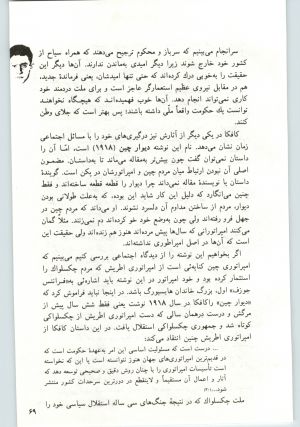 سرانجام می‌بینیم که سرباز و محکوم ترجیح می‌دهند که همراه سیاح از
کشور خود خارج شوند زیرا دیگر امیدی به‌ماندن ندارند. آن‌ها دیگر این
حقیقت را به‌خوبی درک کرده‌اند که حتی تنها امیدشان، یعنی فرماندهٔ جدید،
هم در مقابل نیروی عظیم استعمارگر عاجز است و برای ملت دردمند خود
کاری نمی‌تواند انجام دهد. آن‌ها خوب فهمیده‌اند که هیچگاه نخواهند
توانست یک حکومت واقعاً ملی داشته باشند؛ پس بهتر است که جلای وطن
کنند.
کافکا در یکی دیگر از آثارش نیز درگیری‌های خود را با مسائل اجتماعی
زمان نشان می‌دهد. نام این نوشته دیوار چین (۱۹۱۸) است، امّا آن را
داستان نمی‌توان گفت چون بیش‌تر به‌مقاله می‌ماند تا به‌داستان. مضمون
اصلی آن نبودن ارتباط میان مردم چین و امپراتورشان در پکن است. گویندهٔ
داستان یا نویسندهٔ مقاله نمی‌داند چرا دیوار را قطعه قطعه ساخته‌اند و فقط
چنین می‌انگارد که دلیل این کار شاید این بوده، که به‌علت طولانی بودن
دیوار، مردم از ساختن مداوم آن دلسرد نشوند. او می‌داند که مردم چین در
جهل فرو رفته‌اند ولی چون به‌وضع خود خو کرده‌اند دم نمی‌زنند. مثلاً گمان
می‌کنند امپراتورانی که سال‌ها پیش مرده‌اند هنوز هم زنده‌اند ولی حقیقت این
است که آن‌ها در اصل امپراطوری نداشته‌اند.
اگر بخواهیم این نوشته را از دیدگاه اجتماعی بررسی کنیم می‌بینیم که
امپراتوری چین کنایتی است از امپراتوری اطریش که مردم چکسلواک را
استثمار کرده بود و خود امپراتور در این نوشته باید اشاره‌ئی به‌«فرانتس
جوزف» اول، بزرگ خاندان هابسبورگ باشد. در اینجا نباید فراموش کرد که
«دیوار چین» را کافکا در سال ۱۹۱۸ نوشت یعنی فقط شش سال پیش از
مرگش و درست درهمان سالی که دست امپراتوری اطریش از چکسلواکی
کوتاه شد و جمهوری چکسلواکی استقلال یافت. در این داستان کافکا از
امپراتوری اطریش چنین انتقاد می‌کند:
درست است که مسئولیت اساسی این امر به‌عهدهٔ حکومت است که
در قدیمترین امپراتوری‌های جهان هنوز نتوانسته است یا این که نخواسته
است تأسیسات امپراتوری را با چنان روش دقیق و صحیحی توسعه دهد که
آثار و اعمال آن مستقیماً و لاینقطع در دورترین سرحدات کشور منتشر
شود...
ملت چکسلواک که در نتیجهٔ جنگ‌های سی ساله استقلال سیاسی خود را
۶۹